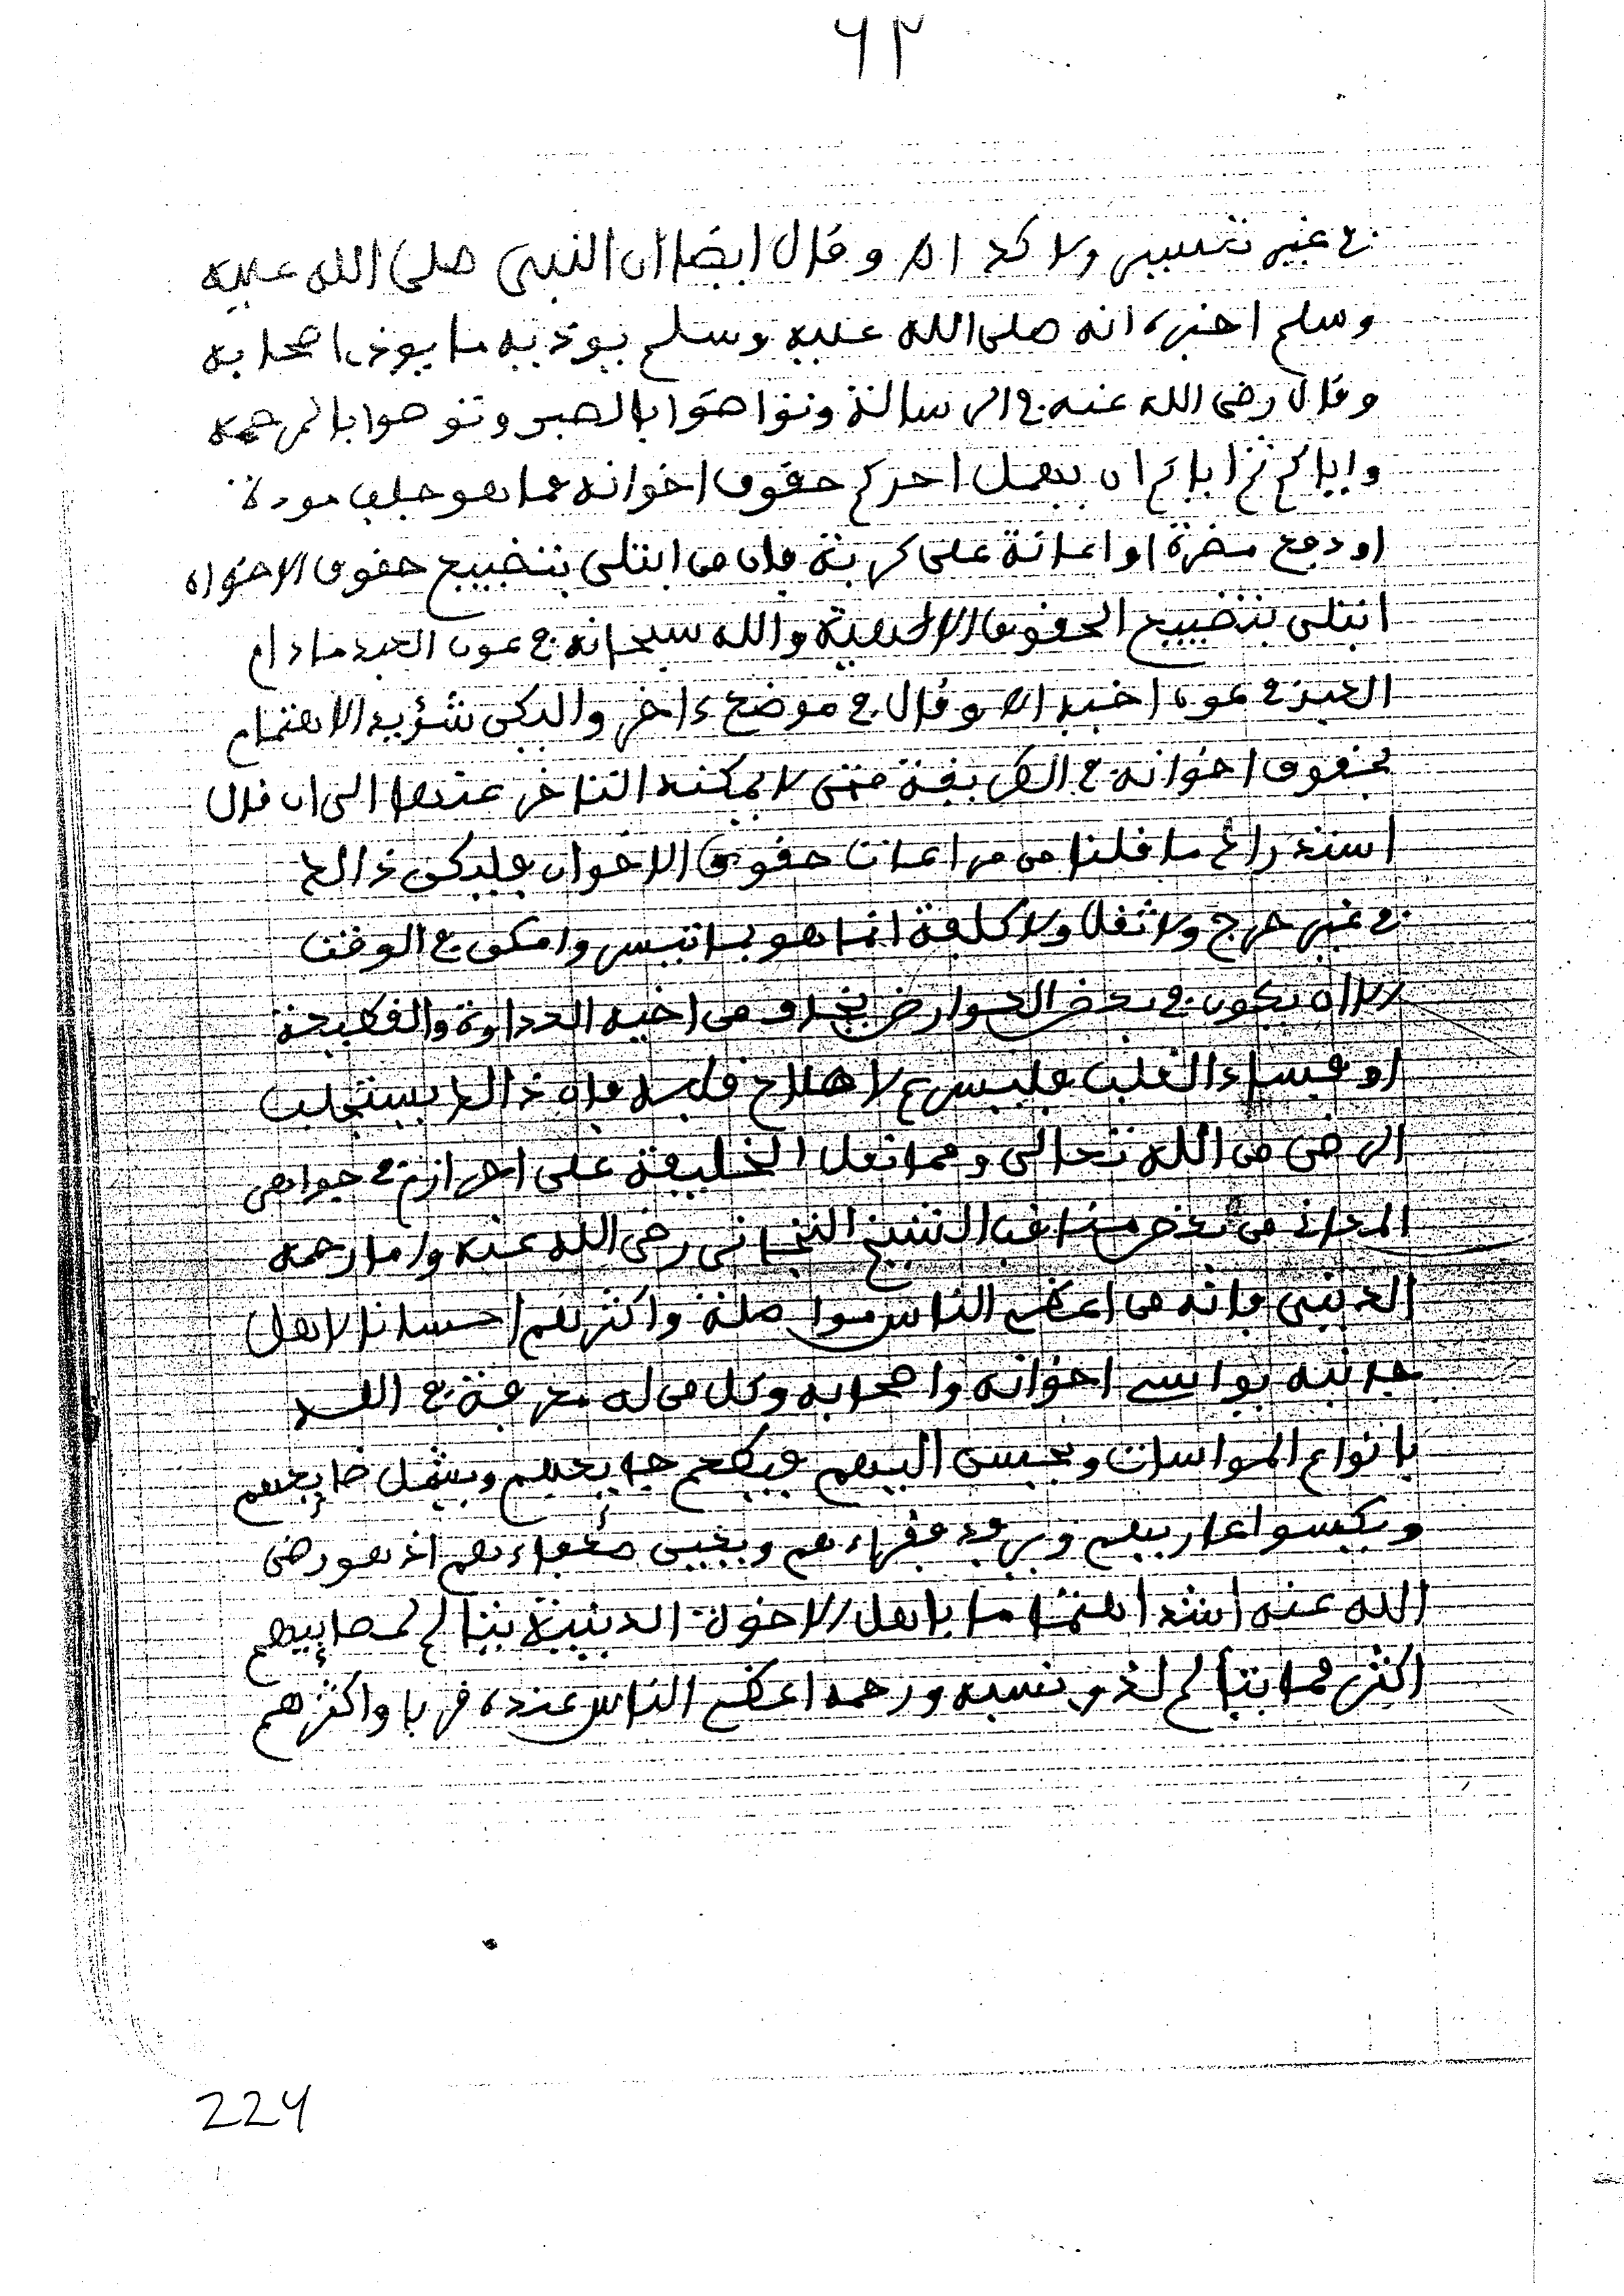 ٦٢
في غير تعسير ولا كد اه وقال ايضا ان النبي صلى الله عليه
وسلم اخبره انه صلى الله عليه وسلم يوذيه ما يوذي اصحابه
وقال رضي الله عنه في الرسالة وتواصوا بالصبر وتوصوا بالمرحمه
واياكم ثم اياكم ان يهمل احدكم حقوق اخوانه مما هو جلب مودة
او دفع مضرة او اعانة على كربة فان من ابتلى بتضييع حقوق الاخوان
ابتلى بتضييع الحقوق الالهية والله سبحانه في عون العبد مادام
العبد في عون اخيه اه وقال في موضع ءاخر واليكن شديد الاهتمام
بحقوق اخوانه في الطريقة حتى لا يمكنه التاخر عنها الى ان قال
استدراك ما قلنا من مراعات حقوق الاخوان فليكن ذالك
في غير حرج ولا ثقل ولا كلفة انما هو بما تيسر وامكن في الوقت
الا ان يكون في بعض العوارض يخاف من اخيه العداوة والقطيعة
او فساد القلب فليسرع لاصلاح قلبه فان ذالك يستجلب
الرضى من الله تعالى ومما نقل الخليفة على احرازم في جواهر
المعاني من بعض مناقب الشيخ التجاني رضي الله عنه واما رحمه
الدينى فانه من اعظم الناس مواصلة واكثرهم احسانا لاهل
جانبه يواسى اخوانه واصحابه وكل من له معرفة في الله
بانواع المواسات ويحسن اليهم فيطعم جايعهم ويشمل ضايعهم
ويكسوا عاريهم ويرفد فقراءهم ويغيث ضعفاءهم اذ هو رضى
الله عنه اشد اهتماما باهل الاخوة الدينية يتالم لمصايبهم
اكثر مما يتالم لذوى نسبه ورحمه اعظم الناس عنده قربا واكثرهم
224